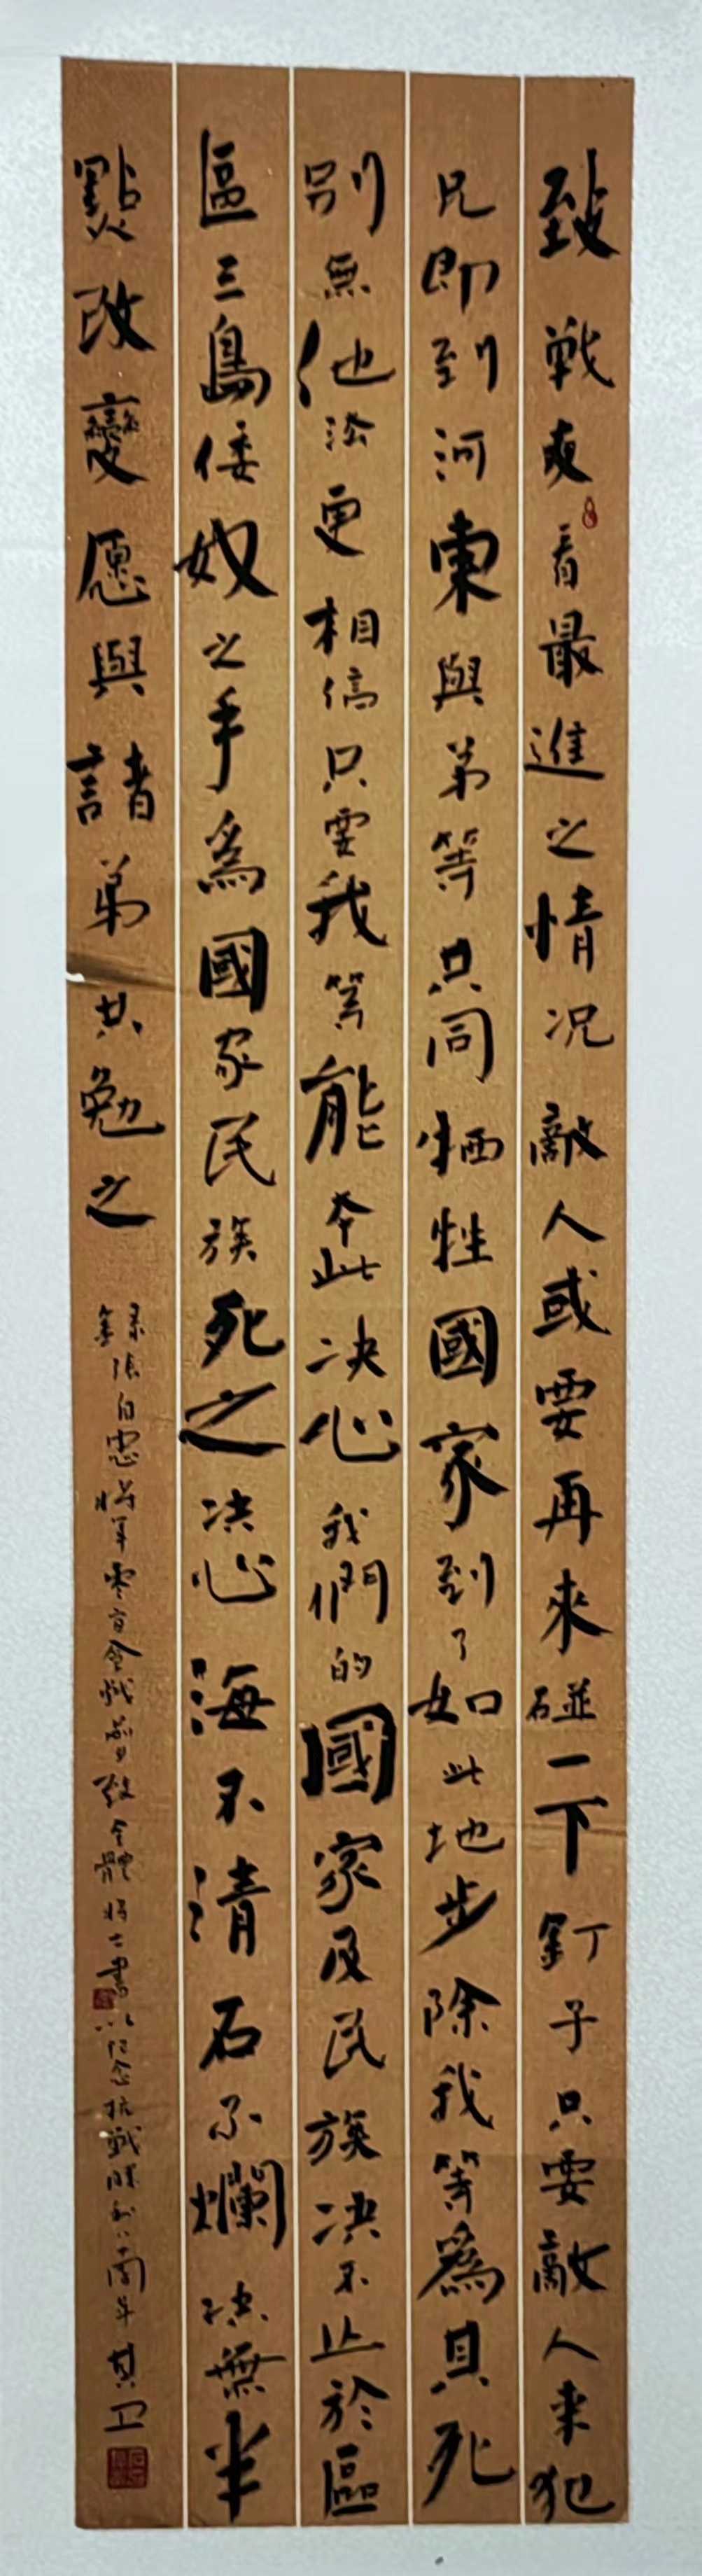 致戰友 看最進之情况敵人或要再來碰一下釘子只要敵人来犯
兄即到河東與弟等共同牺牲國家到了如此地步除我等爲其死
别無他法更相信只要我等能本此决心我們的國家及民族决不止於區
區三島倭奴之手爲國家民族死之决心海不清石不爛决無半
點改變愿與諸弟共勉之
錄張自忠將軍棗宜會戰前致全體將士書以纪念抗戰勝利八十周年 其卫